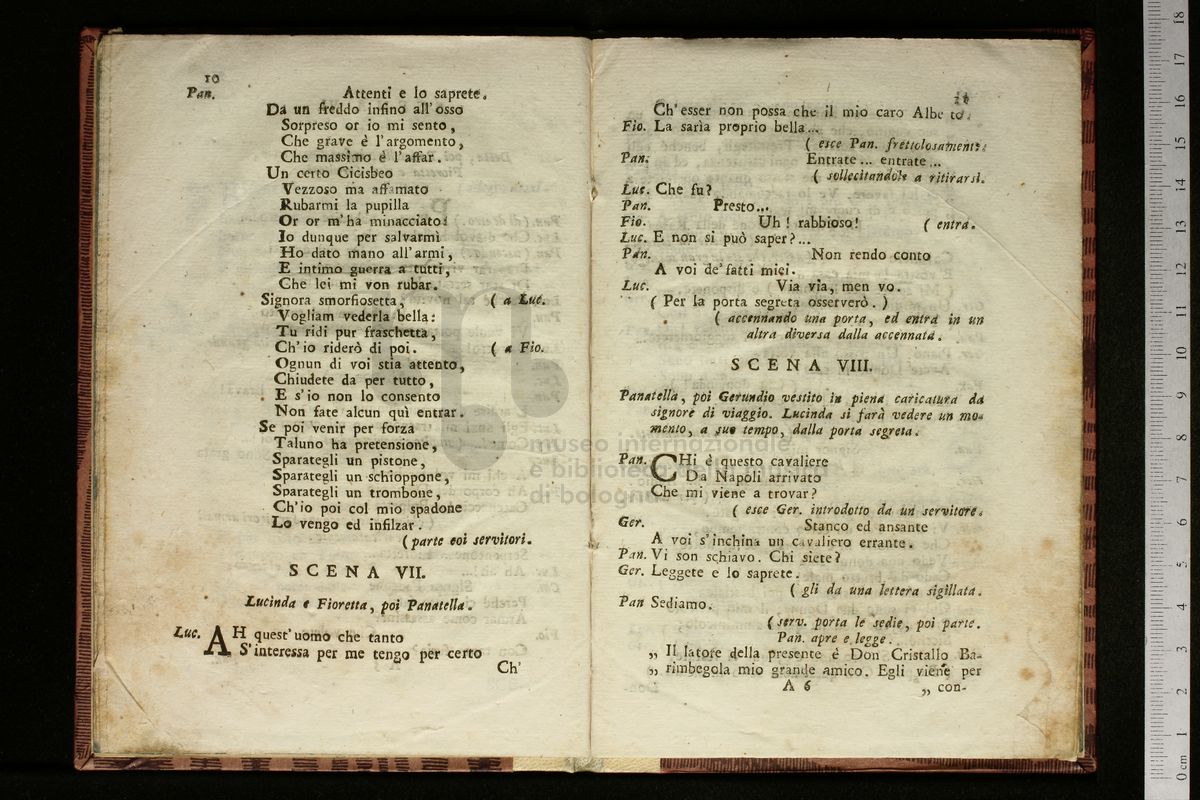 10
Pan. Attenti e lo saprete.
Da un freddo infino all'osso
Sorpreso or io mi sento,
Che grave è l'argomento,
Che massimo è l'affar.
Un certo Cicisbeo
Vezzoso ma affamato
Rubarmi la pupilla
Or or m'ha minacciato:
Io dunque per salvarmi
Ho dato mano all'armi,
E intimo guerra a tutti,
Che lei mi von rubar.
Signora smorfiosetta, ( a Luc.
Vogliam vederla bella:
Tu ridi pur fraschetta,
Ch'io riderò di poi. ( a Fio.
Ognun di voi stia attento,
Chiudete da per tutto,
E s'io non lo consento
Non fate alcun quì entrar.
Se poi venir per forza
Taluno ha pretensione,
Sparategli un pistone,
Sparategli un schioppone,
Sparategli un trombone,
Ch'io poi col mio spadone
Lo vengo ed infilzar.
(parte coi servitori.
SCENA VII.
Lucinda e Fioretta, poi Panatella.
Luc. AH quest'uomo che tanto
S'interessa per me tengo per certo
Ch'
Ch'esser non possa che il mio caro Albe to.
Fio. La sarìa proprio bella...
( esce Pan. frettolosamente.
Pan. Entrate... entrate...
( sollecitandole a ritirarsi.
Luc. Che fu?
Pan. Presto...
Fio. Uh! rabbioso! ( entra.
Luc. E non si può saper?...
Pan. Non rendo conto
A voi de'fatti miei.
Luc. Via via, men vo.
( Per la porta segreta osserverò. )
( accennando una porta, ed entra in un
altra diversa dalla accennata.
SCENA VIII.
Panatella, poi Gerundio vestito in piena caricatura da
signore di viaggio. Lucinda si farà vedere un mo-
mento, a suo tempo, dalla porta segreta.
Pan. CHi è questo cavaliere
Da Napoli arrivato
Che mi viene a trovar?
( esce Ger. introdotto da un servitore.
Ger. Stanco ed ansante
A voi s'inchina un cavaliero errante.
Pan. Vi son schiavo. Chi siete?
Ger. Leggete e lo saprete.
( gli da una lettera sigillata.
Pan Sediamo.
( serv. porta le sedie, poi parte.
Pan. apre e legge.
„ Il latore della presente è Don Cristallo Ba-
„ rimbegola mio grande amico. Egli viene per
A 6 „ con-
museo internazionale
e biblioteca della musica
di bologna